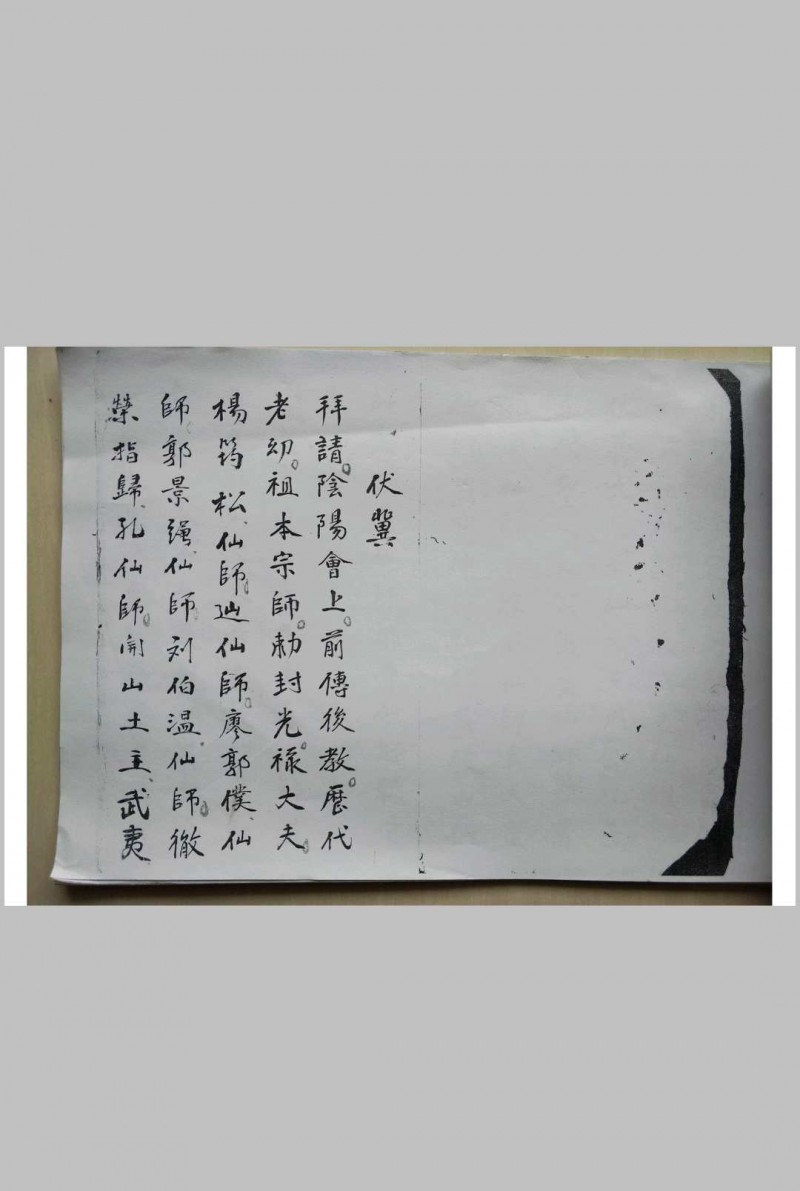 伏冀
拜請。陰陽會上。前傳後教。歷代
老幼。祖本宗師。勅封光祿大夫。
楊筠松、仙師。仙師。廖郭僕、仙
師郭景强、仙師刘伯温、仙師。徹
荣指歸、孔仙師。開山土主、武夷